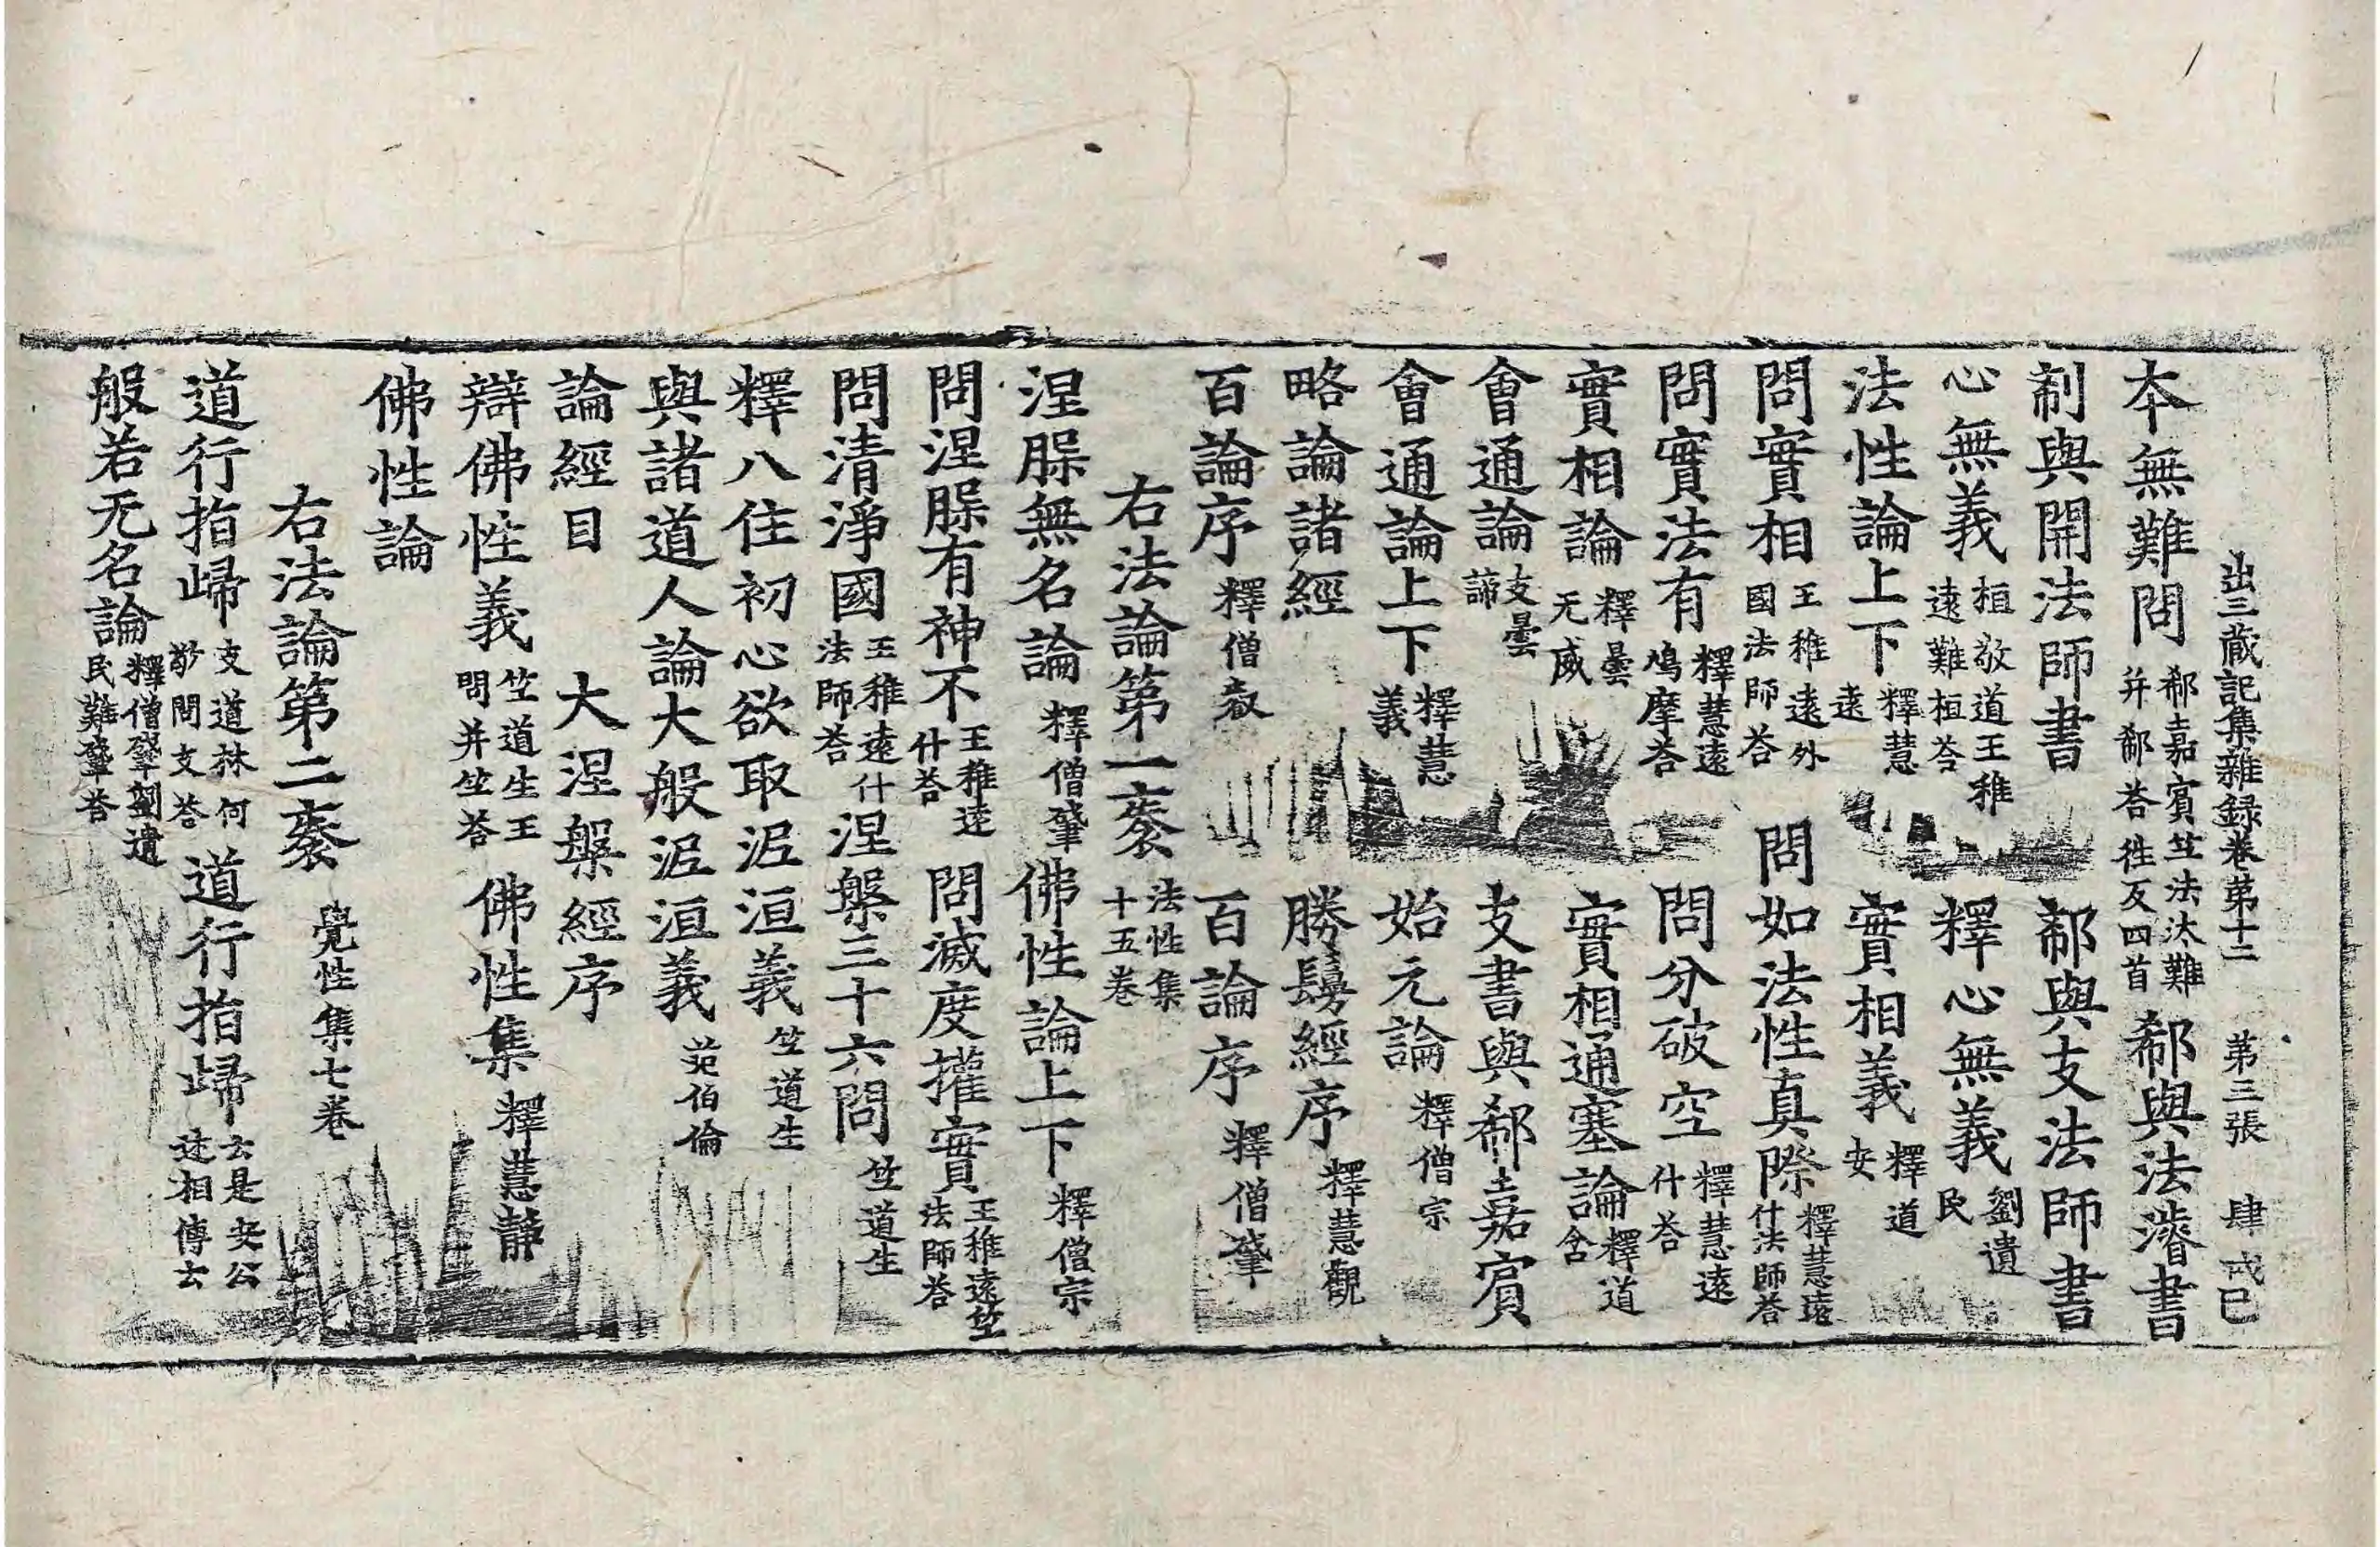 出三藏記集雜録卷第十二　第三張　肆戎巳
本無難問郗嘉賓竺法汰難并郗荅徃反四首郗與法濬書
郗與開法師書　郗與支法師書
心無義桓敬道王稚遠難桓荅　釋心無義劉遺民
法性論上下釋慧遠　實相義釋道安
問實相王稚遠外國法師荅　問如法性真際釋慧遠什法師荅
問實法有釋慧遠鳩摩荅　問分破空釋慧遠什荅
實相論釋曇无威　實相通塞論釋道含
會通論支曇諦　支書與郗嘉賓
會通論上下釋慧義　始元論釋僧宗
略論諸經　勝鬘經序釋慧觀
百論序釋僧叡　百論序釋僧肇
右法論第一袠法性集十五卷
涅槃無名論釋僧肇佛性論上下釋僧宗
問涅槃有神不王稚遠什荅　問滅度權實王稚遠竺法師荅
問清淨國王稚遠什法師荅　涅槃三十六問竺道生
釋八住初心欲取泥洹義竺道生
與諸道人論大般泥洹義范伯倫
論經目　大涅槃經序
辯佛性義竺道生王問并竺荅　佛性集釋慧静
佛性論
右法論第二袠覺性集七卷
道行指歸支道林何敬問支荅　道行指歸云是安公述相傳云
般若无名論釋僧肇劉遺民難肇荅